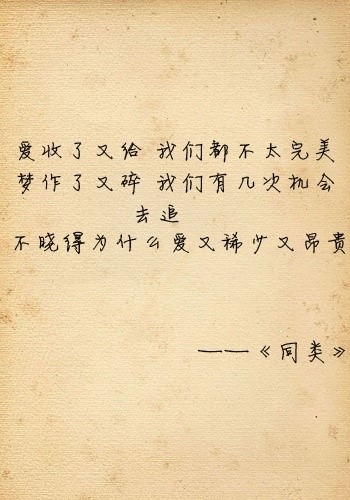 爱收了又给 我们都不太完美
梦作了又碎 我们有几次机会
去追
不晓得为什么爱又稀少又昂贵
——《同类》